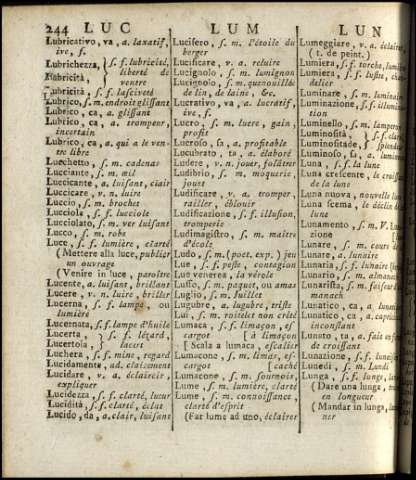 244 LUC
Lubricativo, va, a. laxatif,
ive, f.
Lubrichezza, } s. f. lubricité,
Lubricità, } liberté de
ventre
Lubricità, s. f. lasciveté
Lubrico, s. m. endroit glissant
Lubrico, ca, a. glissant
Lubrico, ca, a. trompeur,
incertain
Lubrico, ca, a. qui a le ven-
tre libre
Lucchetto, s. m. cadenas
Lucciante, s. m. œil
Luccicante, a. luisant, clair
Luccicare, v. n. luire
Luccio, s. m. brochet
Lucciola, s. f. lucciole
Lucciolato, s. m. ver luisant
Lucco, s. m. robe
Luce, s. f. lumière, clarté
(Mettere alla luce, publier
un ouvrage
(Venire in luce, paroître
Lucente, a. luisant, brillant
Lucere, v. n. luire, briller
Lucerna, s. f. lampe ou
lumière
Lucernata, s. f. lampe d'huile
Lucerta, } s. f. lézard,
Lucertola, }
Luchera, s. f. mine, regard
Lucidamente, ad. clairement
Lucidare, v. a. éclaircir,
expliquer
Lucidezza, s. f. clarté, lueur
Lucidità, s. f. clarté, éclat
Lucido, da, a. clair, luisant
LUM
Lucifero, s. m. l'étoile du
berger
Lucificare, v. a. reluire
Lucignolo, s. m. lumignon
Lucignolo, s. m. quenouillée
de lin, de laine, &c.
Lucrativo, va, a. lucratif,
ive, f.
Lucro, s. m. lucre, gain,
profit
Lucroso, sa, a. profitable
Lucubrato, ta, a. élaboré
Ludere, v. n. jouer, folâtrer
Ludibrio, s. m. moquerie,
jouet
Ludificare, v. a. tromper,
railler, éblouir
Ludificazione, s. f. illusion,
tromperie
Ludimagistro, s. m. maître
d'école
Ludo, s. m. (poet. exp.) jeu
Lue, s. f. peste, contagion
Lue venerea, la vérole
Luffo, s. m. paquet, ou amas
Luglio, s. m. juillet
Lugubre, a. lugubre, triste
Lui, s. m. roitelet non crêté
Lumaca, s. f. limaçon, es-
cargot [à limaçon
[Scala a lumaca, escalier
Lumacone, s. m. limas, es-
cargot [caché
Lumacone, s. m. sournois,
Lume, s. m. lumière, clarté
Lume, s. m. connoissance,
clarté d'esprit
(Far lume ad uno, éclairer
LUN
Lumeggiare, v. a. éclairer
(t. de peint.)
Lumiera, s. f. torche,
Lumiera, s. f. lustre,
delier
Luminare, s. m.
Luminare, v. a.
Luminazione, s. f. illumi-
nation
Luminello, s. m.
Luminosità, } s. f. clarté
Luminositade, } splendeur
Luminoso, sa, a.
Luna, s. f. la lune
Luna crescente, le croissant
de la lune
Luna nuova, nouvelle lune
Luna scema, le déclin de
lune
Lunamento, s. m.
Lunare, s. m. cours de
Lunare, a. lunaire
Lunaria, s. f. lunaire
Lunario, s. m. almanach
Lunarista, s. m. faiseur
manach
Lunatico, ca, a. lunatique
Lunatico, ca, a. capricieux,
inconstant
Lunato, ta, a. fait en
de croissant
Lunazione, s. f. lunaison
Lunedì, s. m. Lundi
Lunga, s. f. longe,
(Dare una lunga,
en longueur
(Mandar in lunga,
ner